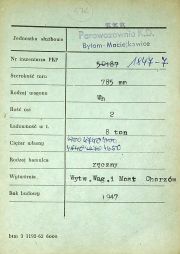 PKP
Jednostka służbowa Parowozownia K.D.
Bytom-Maciejkowice
Nr inwentarza PKP 50187 1847-7
Szerokość toru 785 mm
Rodzaj wagonu Wn
Ilość osi 2
Ładowność w t. 8 ton
Ciężar własny
Rodzaj hamulca ręczny
Wytwórnia Wytw.Wag.i Most Chorzów
Rok budowy 1947